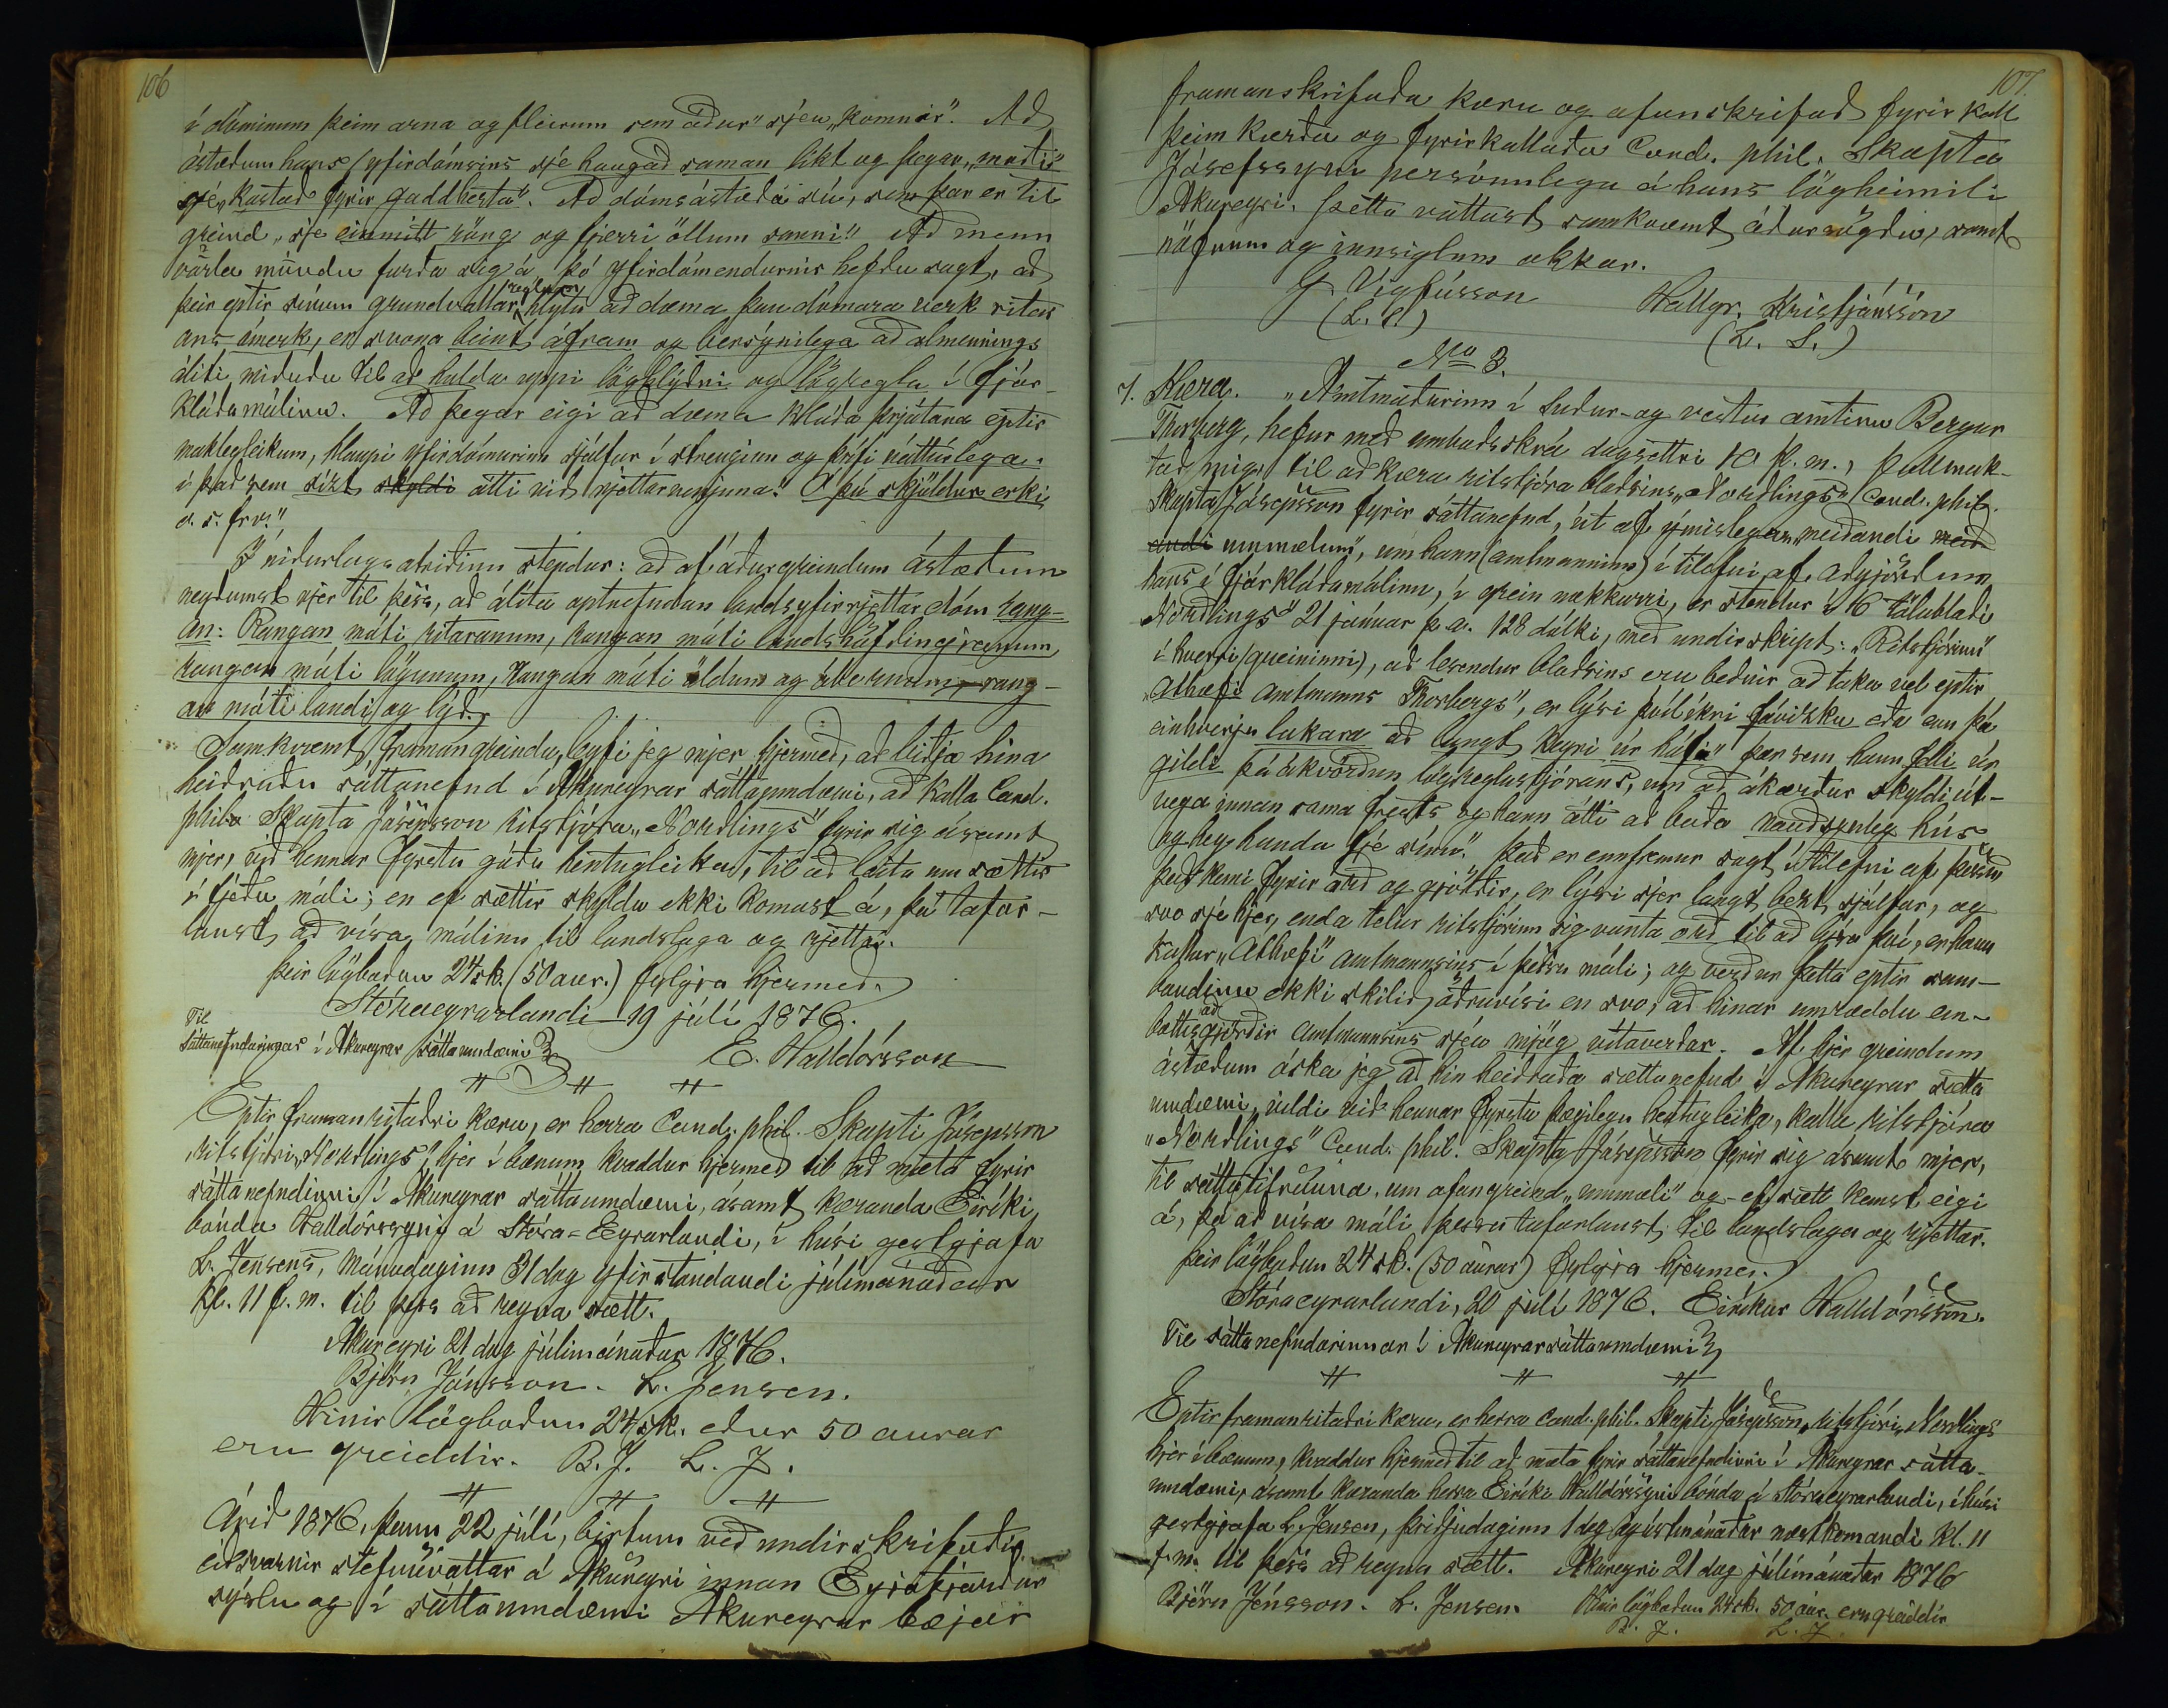 106
í dóminum þeim arna og fleirum sem áður" sjeu "komnir". Að
ástæðum hans (yfirdómsins sje haugað saman líkt og þegar "moði"
sje "kastað fyrir gaddhesta". Að dómsástæða sú, sem þar er til
greind "sje einmitt röng og fjærri öllum sanni" Að menn
varla mundu furða sig á, þó yfirdómendurnir hefðu sagt, að
þeir eptir sínum grundvallar reglum hlytu að dæma þau dómara verk ritar
ans ómerk, er svona beint áfram og bersýnilega að almennings
áliti miðuðu til að halda uppi löghlýðni og lögregla í fjár-
kláðamálinu. Að þegar eigi að dæma kláða þrjótana eptir
maklegleikum, hlaupi yfirdómurinn sjálfur í strenginn og þrífi náttúrlega
í það sem sízt skyldi átti við rjettarvenjuna: Ó þú skjöldur erki
o. s. frv."
Í niðurlags atriðinu stendur: að af áðurgreindum ástæðum
neyðumst vjer til þess, að álíta optnefndan landsyfirrjettar dóm rang-
an: Rangan móti ritaranum, rangan móti landshöfðingjanum
rangan móti lögunum, rangan móti öldum og óbornum, rang-
an móti landi og lýð.
Samkvæmt framangreindu, leyfi jeg mjer hjermeð, að biðja hina
heiðruðu sáttanefnd í Akureyrar sáttaumdæmi, að kalla Cand.
phil. Skapta Jósepsson ritstjóra "Norðlings" fyrir sig ásamt
mjer, við hennar fyrstu góðu hentugleika, til að leita um sættir
í tjeðu máli; en ef sættir skyldu ekki komast á, þá tafar-
laust að vísa málinu til landslaga og rjettar.
Þeir lögboðnu 24 sk. (50 aur.) fylgja hjermeð.
Stóraeyrarlandi 19 júlí 1876.
Til
Sáttanefndarinnar í Akureyrar sáttaumdæmi
E. Halldórsson
Eptir framanritaðri kæru, er herra Cand. phil. Skapti Jósepsson
ritstjóri "Norðlings", hjer í bænum kvaddur hjermeð til að mæta fyrir
sáttanefndinni í Akureyrar sáttaumdæmi, ásamt kæranda Eiríki
bónda Halldórssyni á Stóra-Eyrarlandi, í húsi gestgjafa
L. Jensens, mánudaginn 31 dag yfirstandandi júlímánaðar
kl. 11 f. m. til þess að reyna sætt.
Akureyri 21 dag júlímánaðar 1876.
Björn Jónsson. L. Jensen.
Hinir lögboðnu 24 sk. eður 50 aurar
eru greiddir. B. J. L. J.
Árið 1876, þann 22 júlí, birtum við undirskrifaðir
eiðsvarnir stefnuvottar á Akureyri innan Eyjafjarðar
sýslu og í sáttaumdæmi Akureyrar bæjar
107.
framanskrifaða kæru og ofanskrifað fyrirkall
þeim kærða og fyrirkallaða Cand. phil. Skapta
Jósefssyni persónulega á hans lögheimili
Akureyri. Þetta vottast samkvæmt áðursögðu, samt
nöfnum og innsiglum okkar.
G. Vigfússon Hallgr. Kristjánsson
(L. S.) (L. S.)
No 3.
1. Kæra. "Amtmaðurinn í Suður- og vestur amtinu Bergur
Thorberg, hefur með umboðsskrá dagsettri 10 þ. m., fullmak-
tað mig, til að kæra ritstjóra blaðsins "Norðlings" Cand. phil.
Skapta Jósepsson fyrir sáttanefnd, út af ýmislegum "meiðandi meið
andi ummælum", um hann (amtmanninn) í tilefni af aðgjörðum
hans í fjárkláðamálinu, í grein nokkurri, er stendur í 16 tölublaði
Norðlings" 21 janúar þ. á. 128 dálki, með undirskript: "Ritstjórinn"
í hverri (greininni), að lesendur blaðsins eru beðnir að taka vel eptir
"Athæfi amtmanns Thorbergs", er lýsi þvílíkri fávizku eða enn þá
einhverju lakara að langt keyri úr hófi" þar sem hann felli úr
gildi þá ákvörðun lögreglustjórans, um að ákærður skyldi út-
vega innan sama frests og hann átti að baða nauðsynleg hús
og hey handa fje sínu". Það er ennfremur sagt í tilefni af þessu
það komi fyrir orð og gjörðir, er lýsi sjer langt bezt sjálfar, og
svo sje hjer, enda telur ritstjórinn sig vanta orð til að lýsa því, er hann
kallar "Athæfi" amtmannsins í þessu máli; og verður þetta eptir sam-
bandinu ekki skilið, öðruvísi en svo, að hinar umræddu em-
bættisaðgjörðir amtmannsins sjeu mjög vítaverðar. Af hjer greindum
ástæðum óska jeg að hin heiðraða sættanefnd í Akureyrar sátta
umdæmi, vildi við hennar fyrstu þægilegu hentugleika, kalla ritstjóra
"Norðlings" Cand. phil. Skapta Jósepsson fyrir sig ásamt mjer,
til sáttatilrauna, um ofangreind "ummæli" og - ef sætt kemst eigi
á, þá að vísa máli þessu tafarlaust til landslaga og rjettar.
Þeir lögboðnu 24 sk. (50 aurar) fylgja hjermeð.
Stóraeyrarlandi, 20 júlí 1876. Eiríkur Halldórsson.
Til sáttanefndarinnar í Akureyrar sáttaumdæmi
Eptir framanritaðri kæru, er herra Cand. phil. Skapti Jósepsson, ritstjóri "Norðlings
hjer í bænum, kvaddur hjermeð til að mæta fyrir sáttanefndinni í Akureyrar sátta-
umdæmi, ásamt kæranda herra Eiríki Halldórssyni bónda á Stóraeyrarlandi, í húsi
gestgjafa L. Jensen, þriðjudaginn 1 dag ágústmánaðar næstkomandi kl. 11
f. m. til þess að reyna sætt. Akureyri 21 dag júlímánaðar 1876
Björn Jónsson. L. Jensen. Hinir lögboðnu 24 sk. 50 aur. eru greiddir
B. J. L. J.